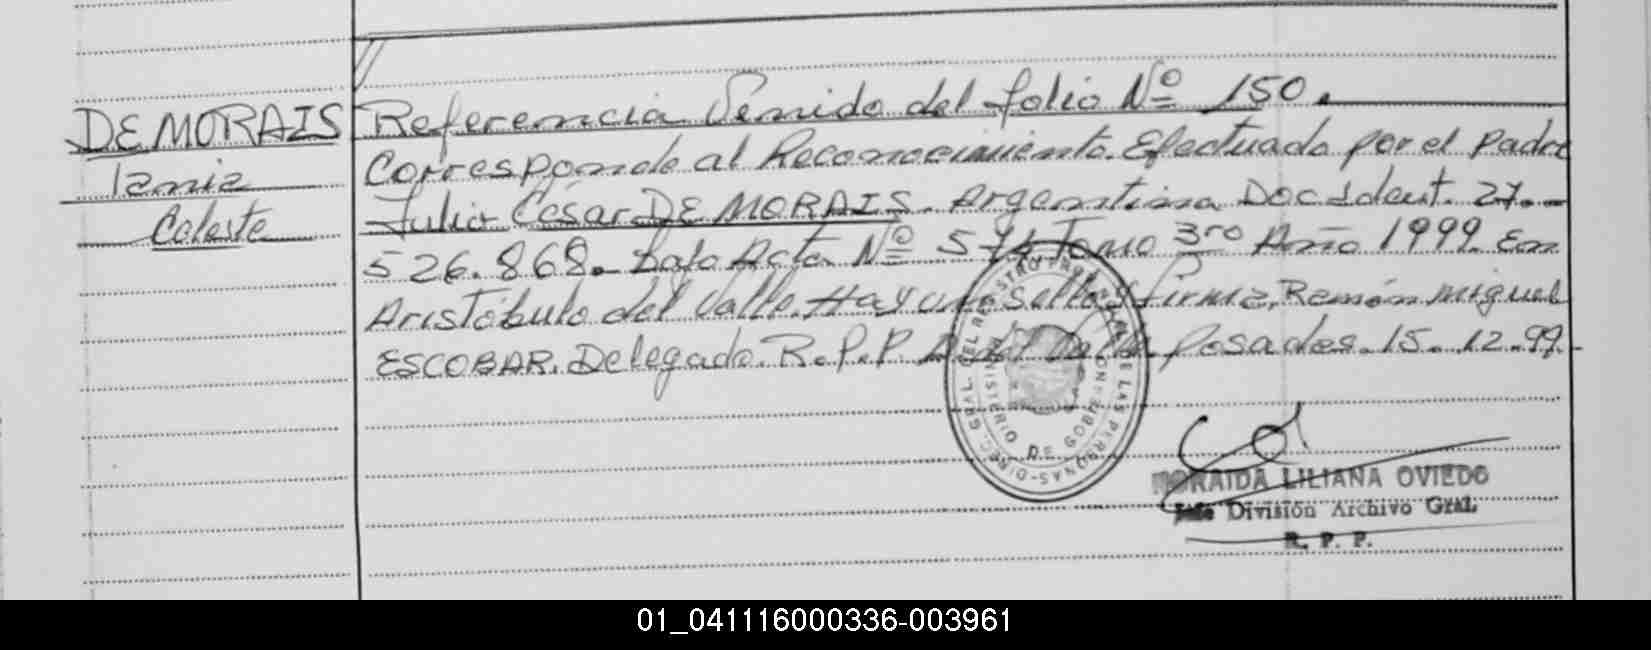 DE MORAIS
Celeste
Referencia Venido del folio Nº 150.
Corresponde al Reconocimiento. Efectuado por el Padre
Julio César DE MORAIS. Argentina Doc Ident. 27.-
526.868. Bajo Acta Nº Tomo 3ro Año 1999. En
Aristóbulo del Valle. Hay un Sello y Firma, Ramón Miguel
ESCOBAR. Delegado. R.P.P. A. del Valle. Posadas. 15.12.99.
DIREC. GRAL. DEL REGISTRO PROVINCIAL DE LAS PERSONAS
MINISTERIO DE GOBIERNO
NORAIDA LILIANA OVIEDO
Jefe División Archivo Gral.
R. P. P.
01_041116000336-003961